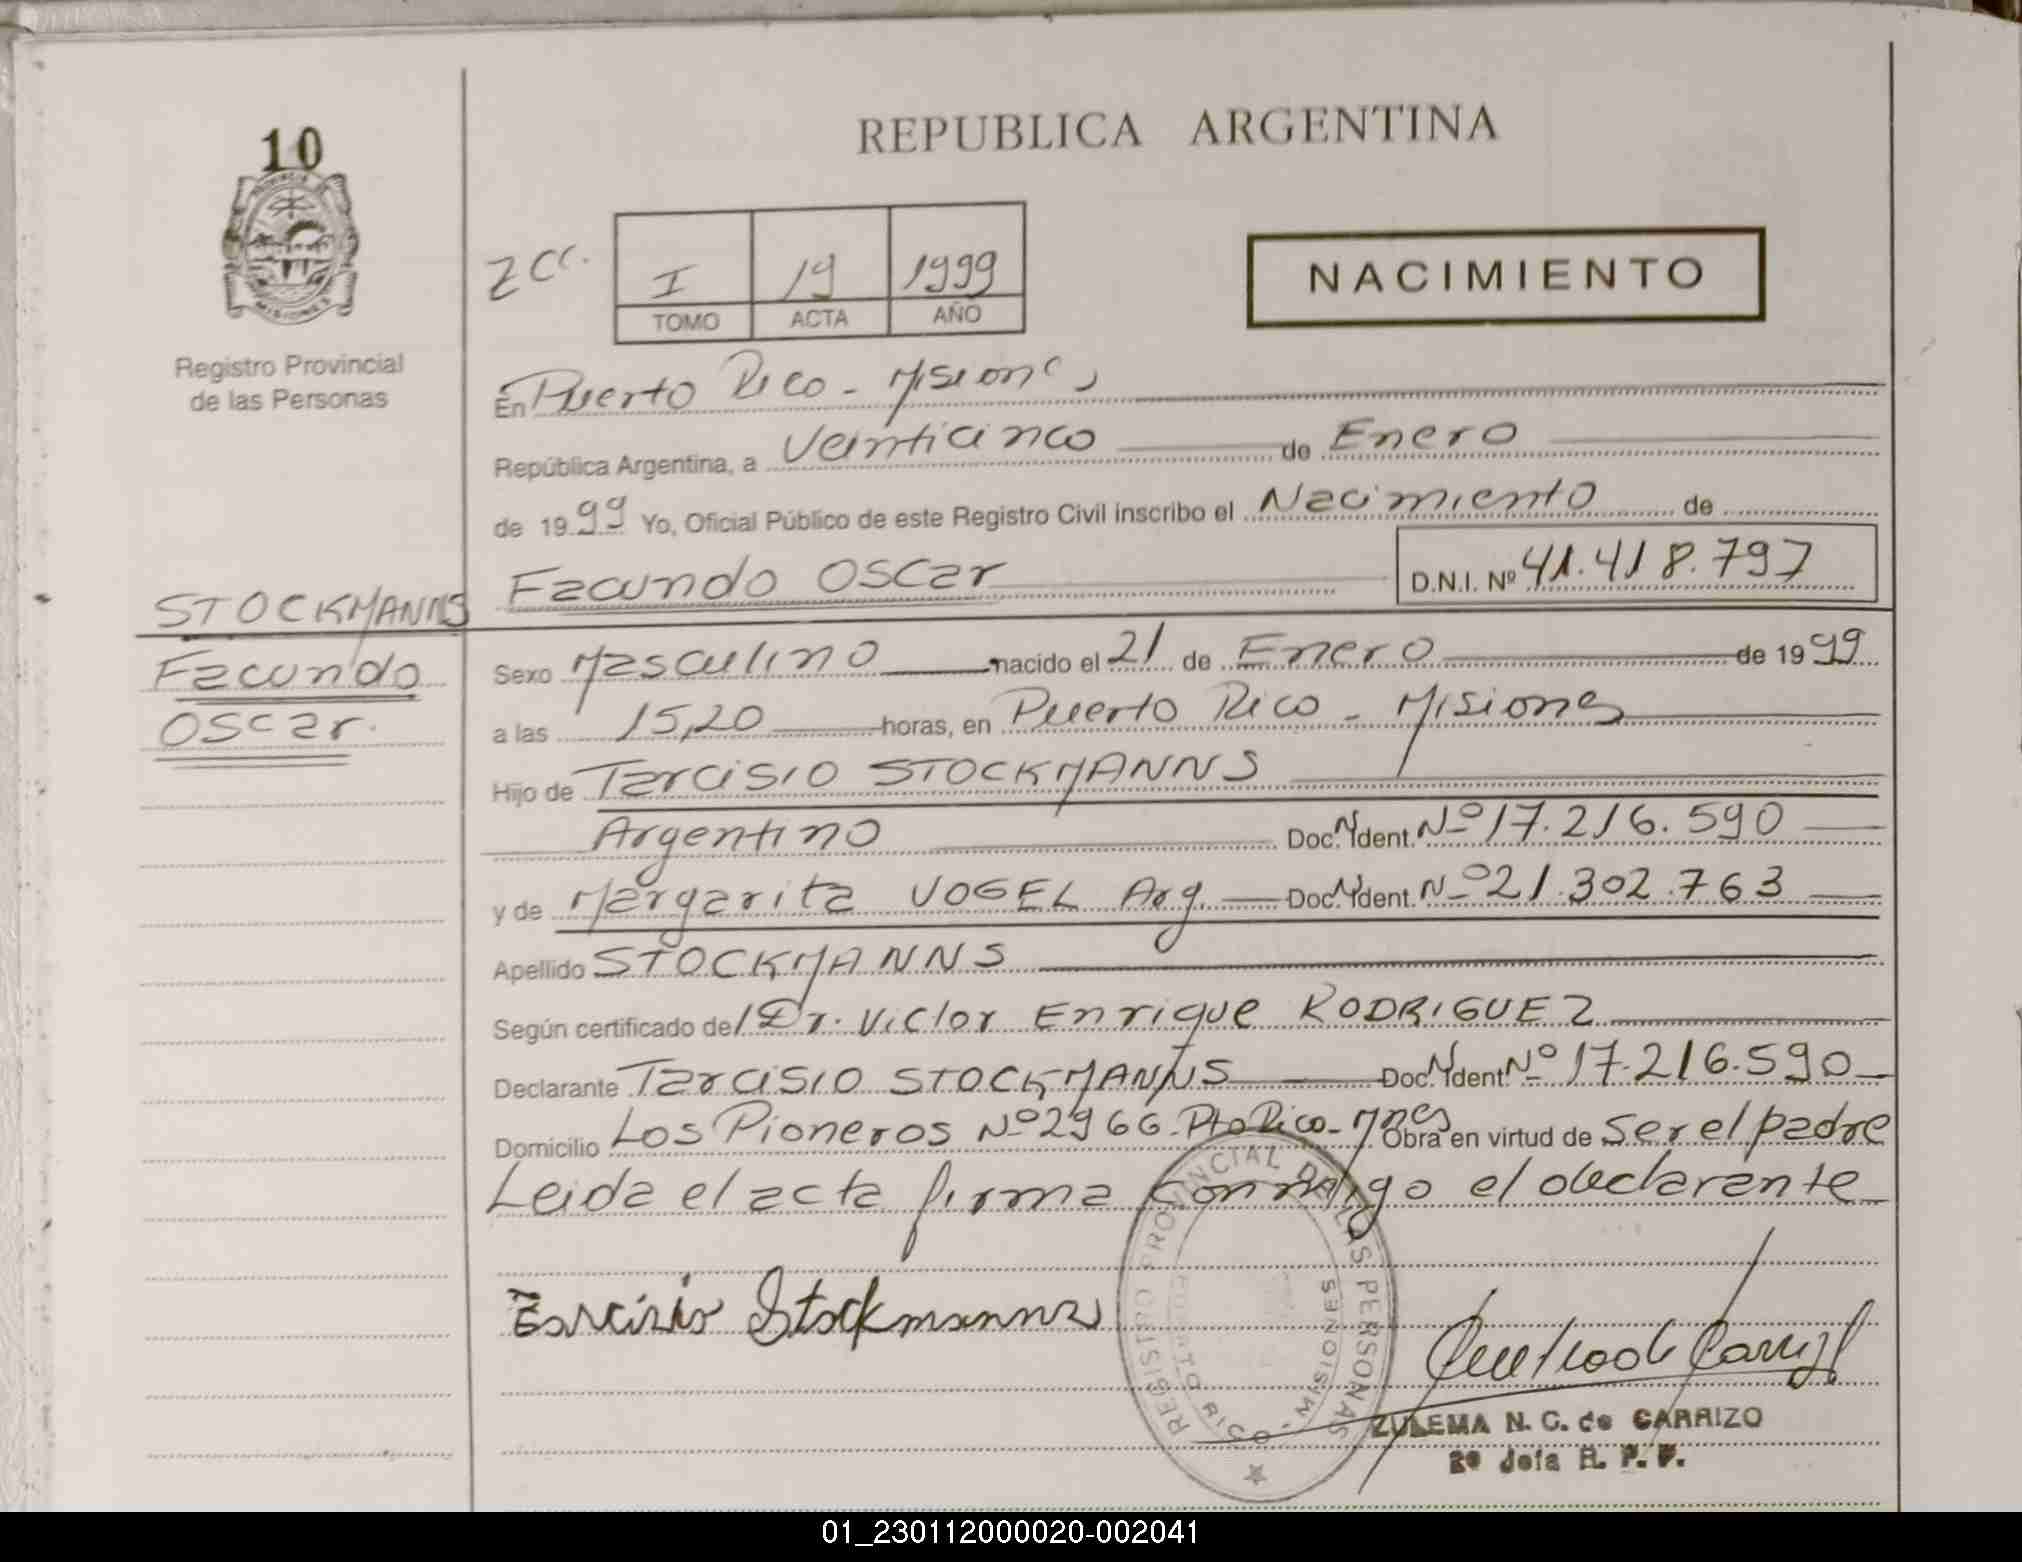 10
PROVINCIA DE
MISIONES
Registro Provincial
de las Personas
STOCKMANNS
Facundo
Oscar.
REPUBLICA ARGENTINA
I 19 1999
TOMO ACTA AÑO
NACIMIENTO
En Puerto Rico - Misiones
República Argentina, a Veinticinco de Enero
de 1999 Yo, Oficial Público de este Registro Civil inscribo el Nacimiento de
Facundo Oscar D.N.I. Nº 41.418.797
Sexo Masculino nacido el 21 de Enero de 1999
a las 15,20 horas, en Puerto Rico - Misiones
Hijo de Tarcisio STOCKMANNS
Argentino Doc. N. Ident. Nº 17.216.590
y de Margarita VOGEL Arg. Doc. N. Ident. Nº 21.302.763
Apellido STOCKMANNS
Según certificado del Dr. Victor Enrique RODRIGUEZ
Declarante Tarcisio STOCKMANNS Doc. N. Ident. Nº 17.216.590
Domicilio Los Pioneros Nº 2966 - Pto Rico - Mnes Obra en virtud de ser el padre
Leida el acta firma conmigo el declarante
Tarcisio Stockmanns
REGISTRO PROVINCIAL DE LAS PERSONAS
PUERTO RICO - MISIONES
ZULEMA N. C. de CARRIZO
2º Jefa R. P. P.
01_230112000020-002041